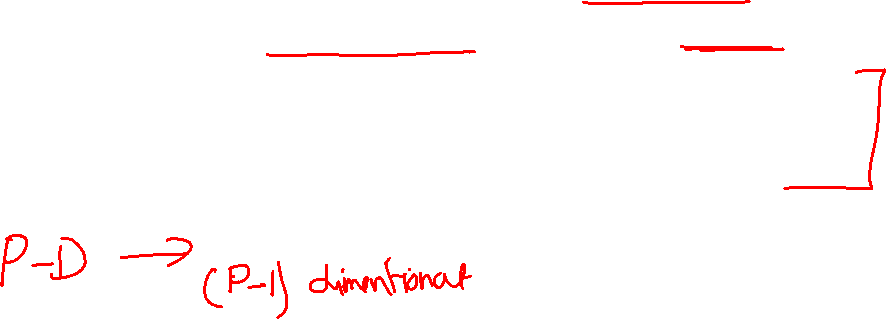 P-D → (P-1) dimentional